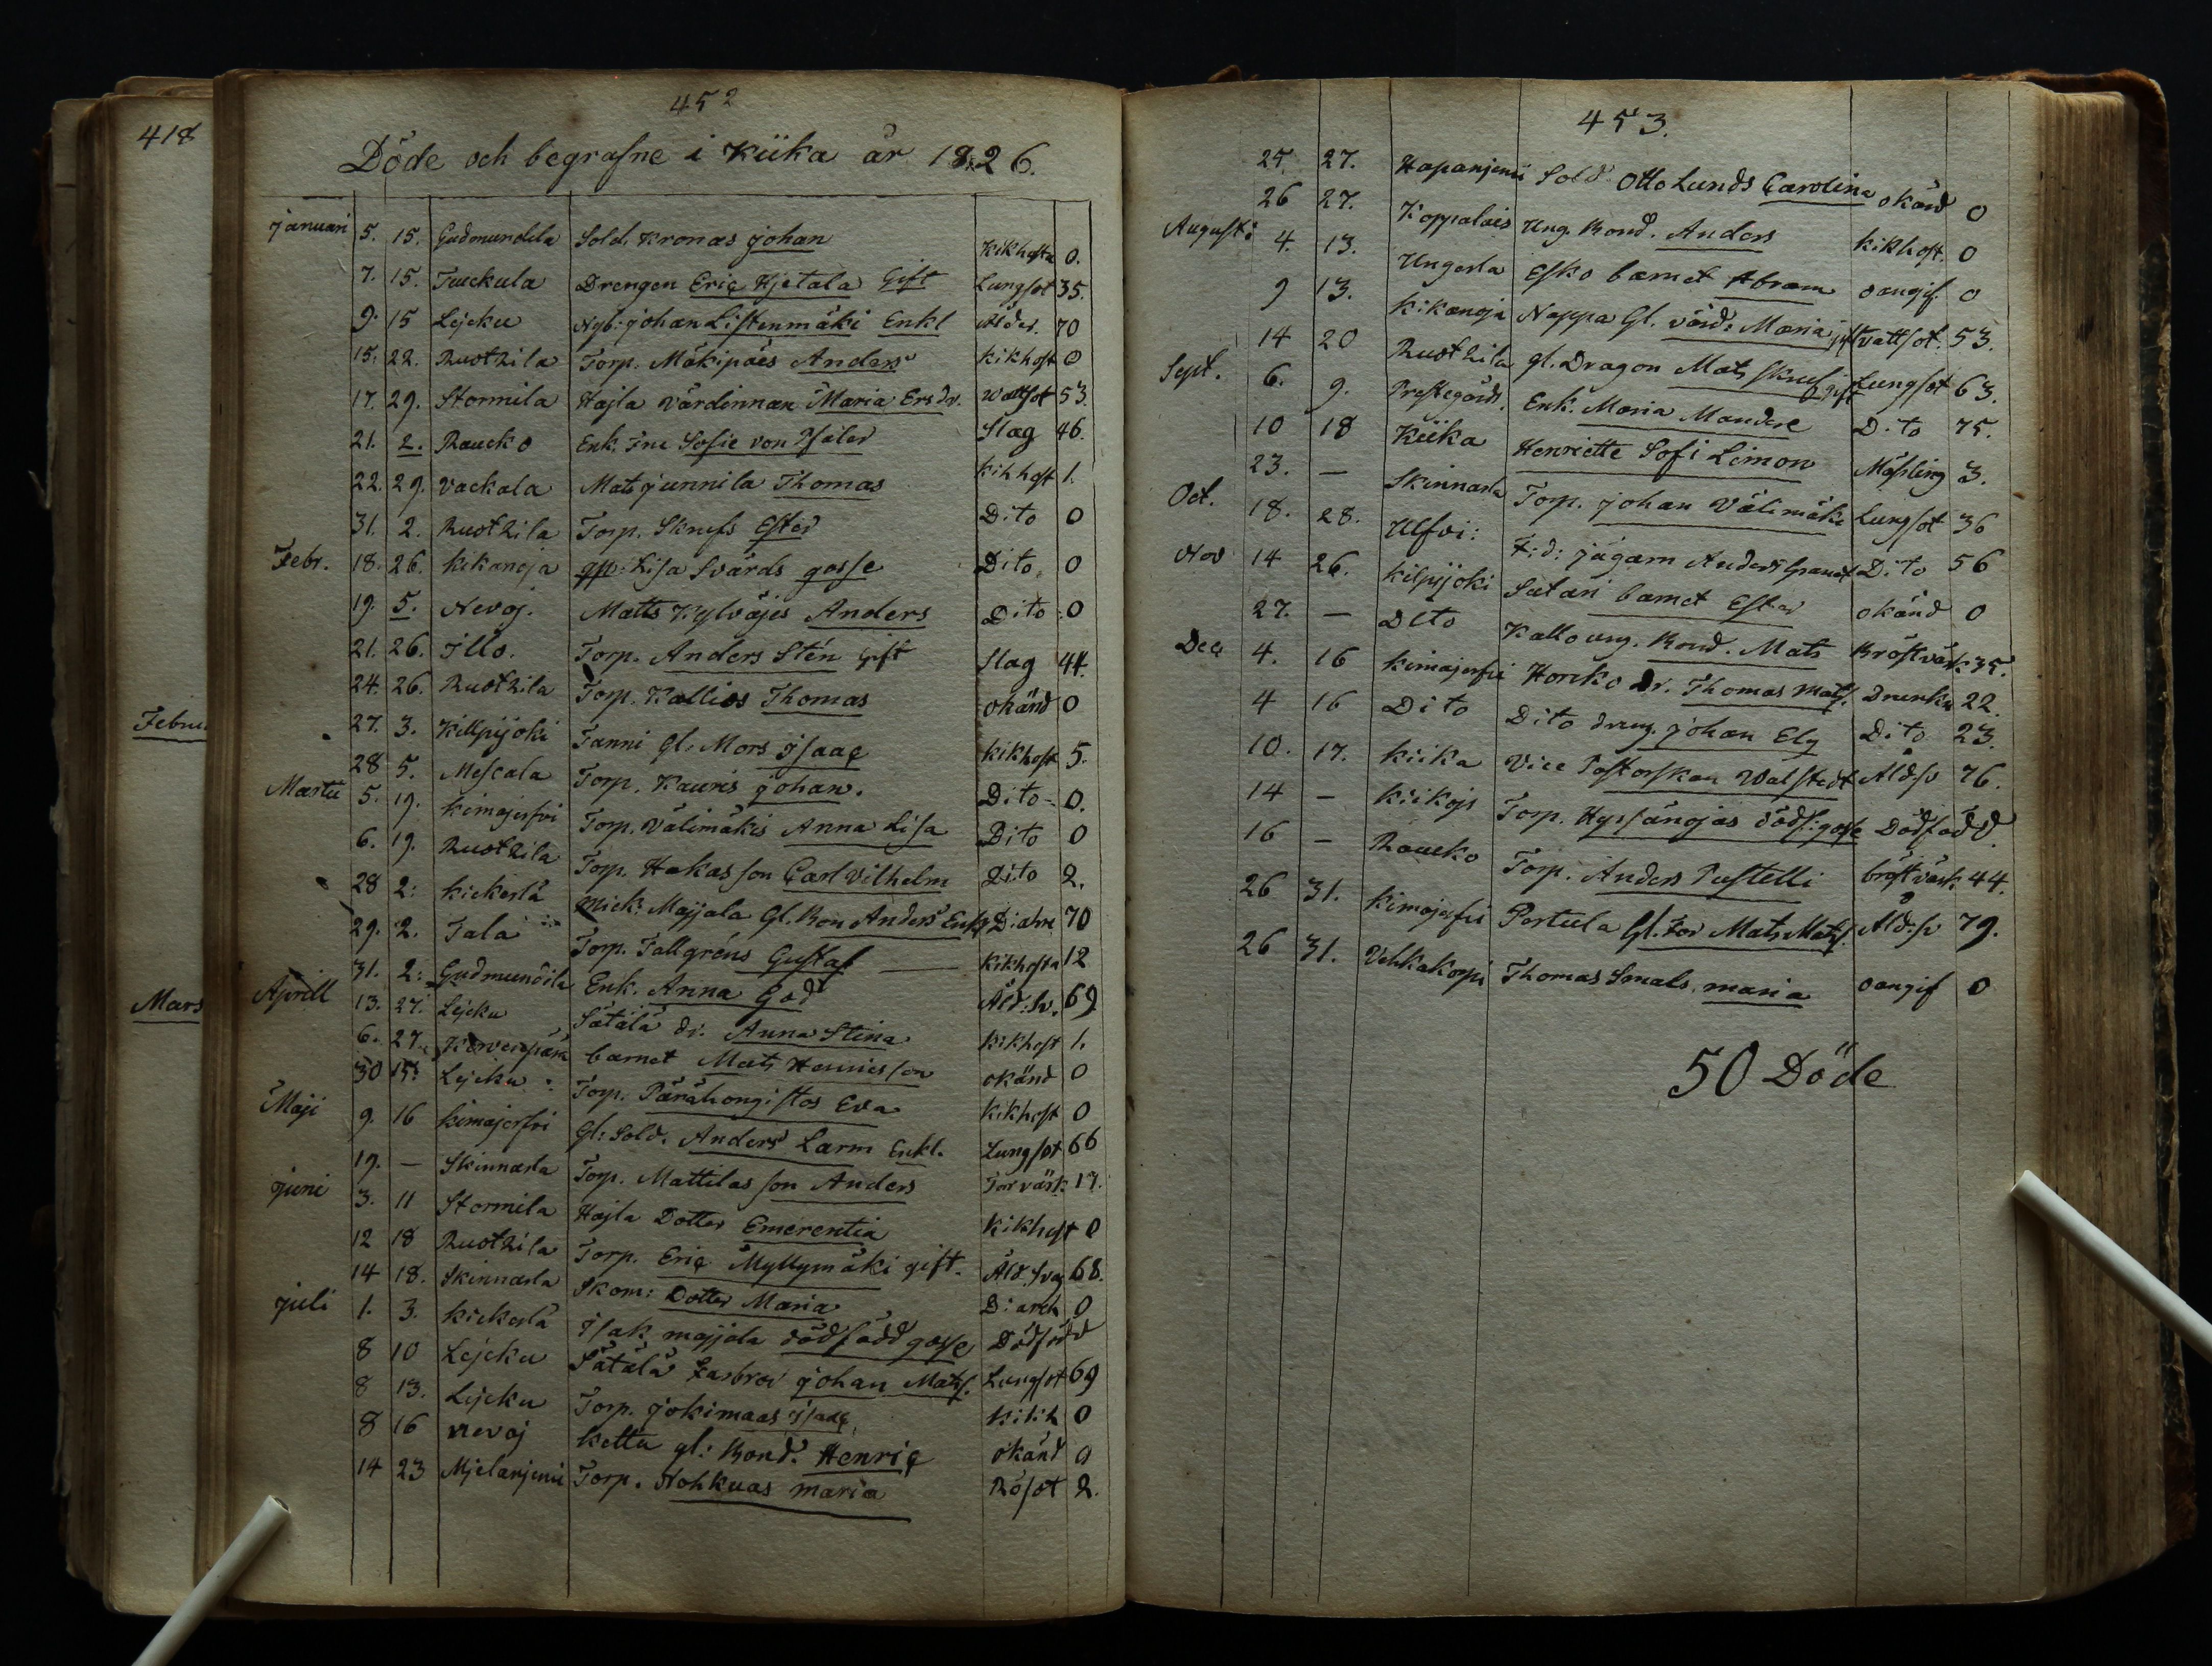 418
Februa
Mars
452
Döde och begrafne i Kiika år 1826.
Januari 5. 15. Gudmundila Sold. Kronas Johan Kikhosta 0.
7. 15. Tuckula Drengen Eric Hjetala Gift Lungsot 35.
9. 15 Lejcku Nyb: Johan Listenmäki Enkl Ålder. 70
15. 22. Ruothila Torp. Mäkipäes Anders Kikhost 0
17. 29. Stormila Hajla värdinnan Maria Ersdr. Wattsot 53.
21. 2. Raucko Enk. Fru Sofie von Pfaler Slag 46.
22. 29. Vackala Mats Junnila Thomas Kikhost 1.
31. 2. Ruothila Torp. Skrufs Ester Dito 0
Febr. 18. 26. Kikanoja Lisa Svärds gosse Dito. 0
19. 5. Nevoj. Matts Kylväjes Anders Dito 0
21. 26. Illo. Torp. Anders Stén Gift Slag 44.
24. 26. Ruothila Torp. Kallios Thomas okänd 0
27. 3. Killpijoki Tanni Gl. Mors Isaac Kikhost 5.
28 5. Mescala Torp. Kauris Johan. Dito 0.
Martii 5. 19. Kimajerfvi Torp. Välimäkis Anna Lisa Dito 0
6. 19. Ruothila Torp. Hakas son Carl Vilhelm Dito 2.
28 2: Kickerlä Mick: Majjala Gl. Bon Anders Enkl Diahre 70
29. 2. Tala Torp. Tallgréns Gustaf Kikhosta 12
31. 2: Gudmundila Enk. Anna God Åld: Sv. 69
Aprill 13. 27. Lejcku Sätälä dr. Anna Stina Kikhost 1.
6. 27. Karvenpää barnet Mats Hennisson okänd 0
30 15. Lejcku : Torp. Pärähongistos Eva Kikhost 0
Maji 9. 16 Kimajerfvi Gl: Sold. Anders Larm Enkl. Lungsot 66
19. — Skinnarla Torp. Mattilas son Anders Torvärk 17.
Juni 3. 11 Stormila Hajla Dotter Emerentia Kikhost 0
12 18 Ruothila Torp. Eric Myllymäki gift. Åld. Svag 68.
14 18. Skinnarla Skom: Dotter Maria Diareh 0
Juli 1. 3. Kickerlä Isak majjala dödfödd gosse Dödfödd
8 10 Lejcku Sätälä Farbror Johan Mats. Lungsot 69
8 13. Lejcku Torp. Jokimaas Isaac Kikh 0
8 16 Nevoj Kettu gl: Bond. Henric okänd 0
14 23 Mjelanjemi Torp. Nohkuas maria Rösot 2.
453.
25. 27. Hapanjemi Sold Otto Lunds Carolina okänd 0
26 27. Koppalais Ung. Bond. Anders kikhost. 0
Augusti 4. 13. Ungerla Esko barnet Abram oangif. 0
9 13. Kikanoja Nappa Gl. värd: Maria gift Vattsot. 53.
14 20 Ruothila gl. Dragon Mats Skruf gift Lungsot 63.
Sept. 6. 9. Prestegård. Enk. Maria Manderl Dito 75.
10 18 Kiika Henriette Sofi Limon Mässling 3.
23. — Skinnarla Torp. Johan Välimäki Lungsot 36
Oct. 18. 28. Ulfvi: F:d: jägarn Anders Granat Dito 56
Nov 14 26. Kilpijoki Satari barnet Ester okänd 0
27. — Dito Kallo ung. Bond. Mats Bröstvärk 35.
Dec 4. 16 Kimajerfvi Horcko Dr. Thomas Mats. Drunkn 22.
4 16 Dito Dito dreng. Johan Elg Dito 23.
10. 17. Kiika Vice Pastorskan Walstedt Åld:sv 76.
14 — Kiikojs Torp. Hyssänojas dödf: gosse Dödfödd.
16 — Raucko Torp. Anders Pustelli bröstvärk 44.
26 31. Kimajerfvi Pertula Gl. For Mats Mats. Åld:sv 79.
26 31. Vehkakorpi Thomas Smals maria oangif 0
50 Döde